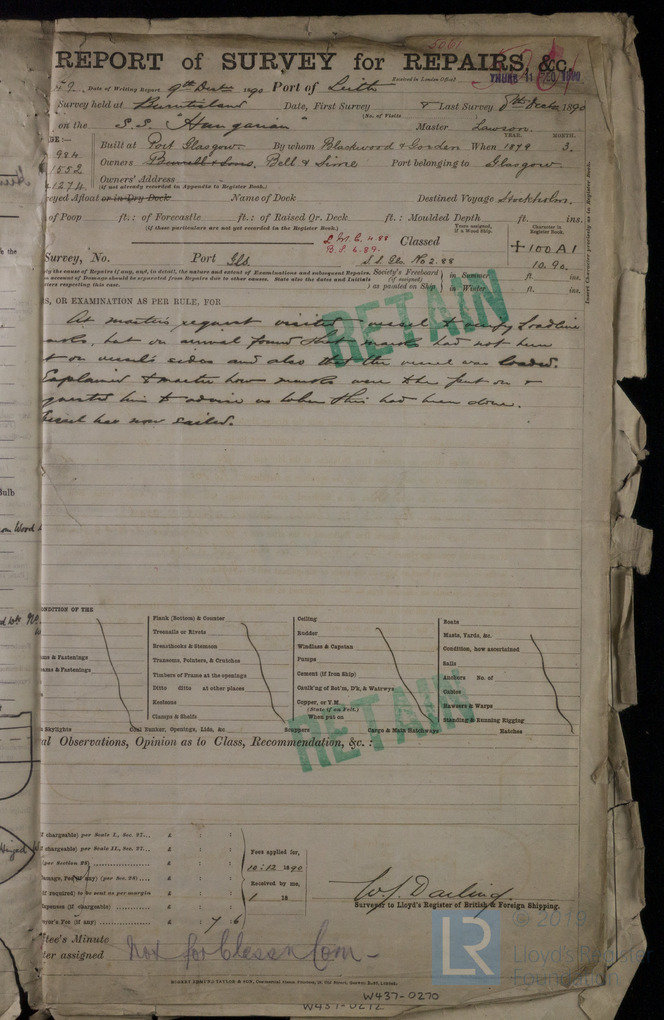 5061
REPORT of SURVEY for REPAIRS, &c.
Date of Writing Report 9th Decr 1890 Port of Leith
Received in London Office THURS 11 DEC 1890
Survey held at Burntisland Date, First Survey & Last Survey 8th Decr 1890
(No. of Visits
on the S.S. "Hungarian" Master Lawson.
YEAR. MONTH.
984 Built at Port Glasgow By whom Blackwood & Gordon When 1879 3.
1552 Owners Burrell & Sons, Bell & Sime Port belonging to Glasgow
1274 Owners' Address
(If not already recorded in Appendix to Register Book.)
eyed Afloat or in Dry Dock Name of Dock Destined Voyage Stockholm.
of Poop ft.: of Forecastle ft.: of Raised Qr. Deck ft.: Moulded Depth ft. ins.
(If these particulars are not yet recorded in the Register Book.)
Years assigned, if a Wood Ship.
Character in Register Book.
L.M.C. 4.88
B.S. 4.89. Classed +100 A1
Survey, No. Port Gls S.S. Gls. No 2.88 10.90.
Society's Freeboard (if assigned) as painted on Ship in Summer ft. ins.
in Winter ft. ins.
S, OR EXAMINATION AS PER RULE, FOR
At masters request visited vessel to verify Loadline
marks, but on arrival found that marks had not been
t on vessel's sides and also that the vessel was loaded.
Explained to master how marks were to be put on &
quested him to advise us when this had been done.
Vessel has now sailed.
RETAIN
ONDITION OF THE
Plank (Bottom) & Counter
Treenails or Rivets
Breasthooks & Stemson
Transoms, Pointers, & Crutches
Timbers of Frame at the openings
Ditto ditto at other places
Keelsons
Clamps & Shelfs
Ceiling
Rudder
Windlass & Capstan
Pumps
Cement (if Iron Ship)
Caulk'ng of Bot'm, D'k, & Watrwys
Copper, or Y.M.
(State if on Felt.)
When put on
Boats
Masts, Yards, &c.
Condition, how ascertained
Sails
Anchors No. of
Cables
Hawsers & Warps
Standing & Running Rigging
Skylights Coal Bunker, Openings, Lids, &c. Scuppers Cargo & Main Hatchways Hatches
RETAIN
al Observations, Opinion as to Class, Recommendation, &c. :
f chargeable) per Scale I., Sec. 27... £ : :
f chargeable) per Scale II., Sec. 27... £ : :
(per Section 28) £ : :
Damage, Fee (if any) (per Sec. 28)... £ : :
If required; to be sent as per margin £ : :
xpenses (if chargeable) £ : :
yor's Fee (if any) £ : 7 : 6
Fees applied for,
10.12.1890
Received by me,
18
W. J. Darling.
Surveyor to Lloyd's Register of British & Foreign Shipping.
ttee's Minute
ter assigned
Not for Classn Com-
© 2019
LR
Lloyd's Register
Foundation
W437-0270
W437-0272